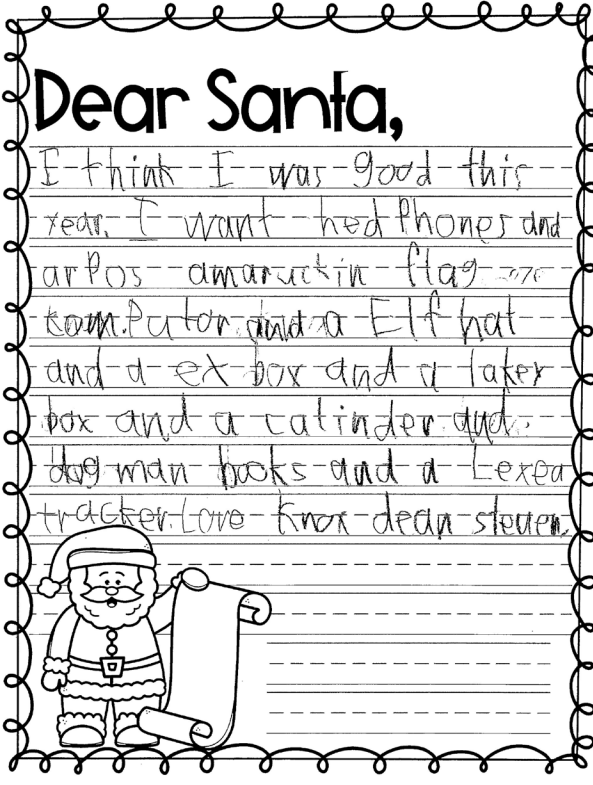 Dear Santa,
I think I was good this
year. I want hed Phones and
arPos amaruckin flag
kom.Putor and a Elf hat
and a ex box and a laker
box and a calinder and
dog man books and a Lexea
tracker. Love Knox dean steven.